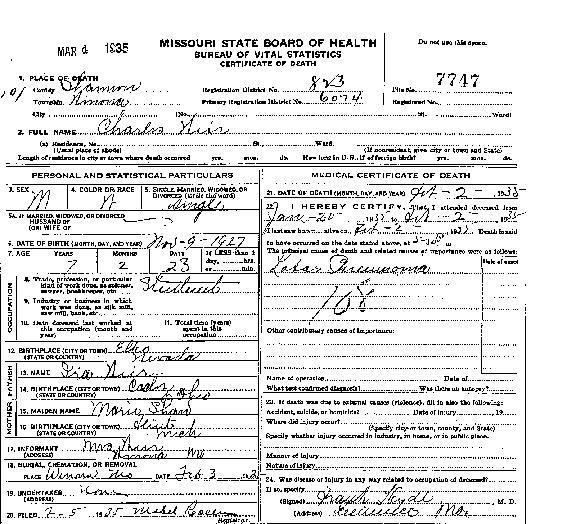 MAR 4 1935
MISSOURI STATE BOARD OF HEALTH
BUREAU OF VITAL STATISTICS
CERTIFICATE OF DEATH
Do not use this space.
1. PLACE OF DEATH
County Shannon Registration District No. 823 File No. 7747
Township Primary Registration District No. 6074 Registered No.
City No. St. Ward)
2. FULL NAME Charles
(a) Residence, No. St. Ward.
(Usual place of abode) (If nonresident, give city or town and State)
Length of residence in city or town where death occurred yrs. mos. ds. How long in U. S., if of foreign birth? yrs. mos. ds.
PERSONAL AND STATISTICAL PARTICULARS
3. SEX M
4. COLOR OR RACE
5. SINGLE, MARRIED, WIDOWED, OR DIVORCED (write the word) Single
5A. IF MARRIED, WIDOWED, OR DIVORCED
HUSBAND OF
(OR) WIFE OF
6. DATE OF BIRTH (MONTH, DAY, AND YEAR) Nov-9-1927
7. AGE YEARS 7 MONTHS 2 DAYS 23 If LESS than 1 day, hrs. or min.
OCCUPATION
8. Trade, profession, or particular kind of work done, as spinner, sawyer, bookkeeper, etc. Student
9. Industry or business in which work was done, as silk mill, saw mill, bank, etc.
10. Date deceased last worked at this occupation (month and year)
11. Total time (years) spent in this occupation
12. BIRTHPLACE (CITY OR TOWN) Elko
(STATE OR COUNTRY) Nevada
FATHER
13. NAME
14. BIRTHPLACE (CITY OR TOWN)
(STATE OR COUNTRY)
MOTHER
15. MAIDEN NAME Marie
16. BIRTHPLACE (CITY OR TOWN) Flint
(STATE OR COUNTRY) Mich
17. INFORMANT Mrs
(ADDRESS) Mo
18. BURIAL, CREMATION, OR REMOVAL
PLACE Winona Mo DATE Feb 3
19. UNDERTAKER
(ADDRESS)
20. FILED 2-5 1935 Mabel
Registrar.
MEDICAL CERTIFICATE OF DEATH
21. DATE OF DEATH (MONTH, DAY, AND YEAR) Feb-2-1935
22. I HEREBY CERTIFY, That I attended deceased from
1935 to Feb-2-1935
I last saw h alive on Feb-2- Death is said
to have occurred on the date stated above, at m.
The principal cause of death and related causes of importance were as follows:
Date of onset
Lobar Pneumonia
108
Other contributory causes of importance:
Name of operation Date of
What test confirmed diagnosis? Was there an autopsy?
23. If death was due to external causes (violence), fill in also the following:
Accident, suicide, or homicide? Date of injury 19
Where did injury occur?
(Specify city or town, county, and State)
Specify whether injury occurred in industry, in home, or in public place.
Manner of injury
Nature of injury
24. Was disease or injury in any way related to occupation of deceased?
If so, specify
(Signed) Hyde M. D.
(Address)